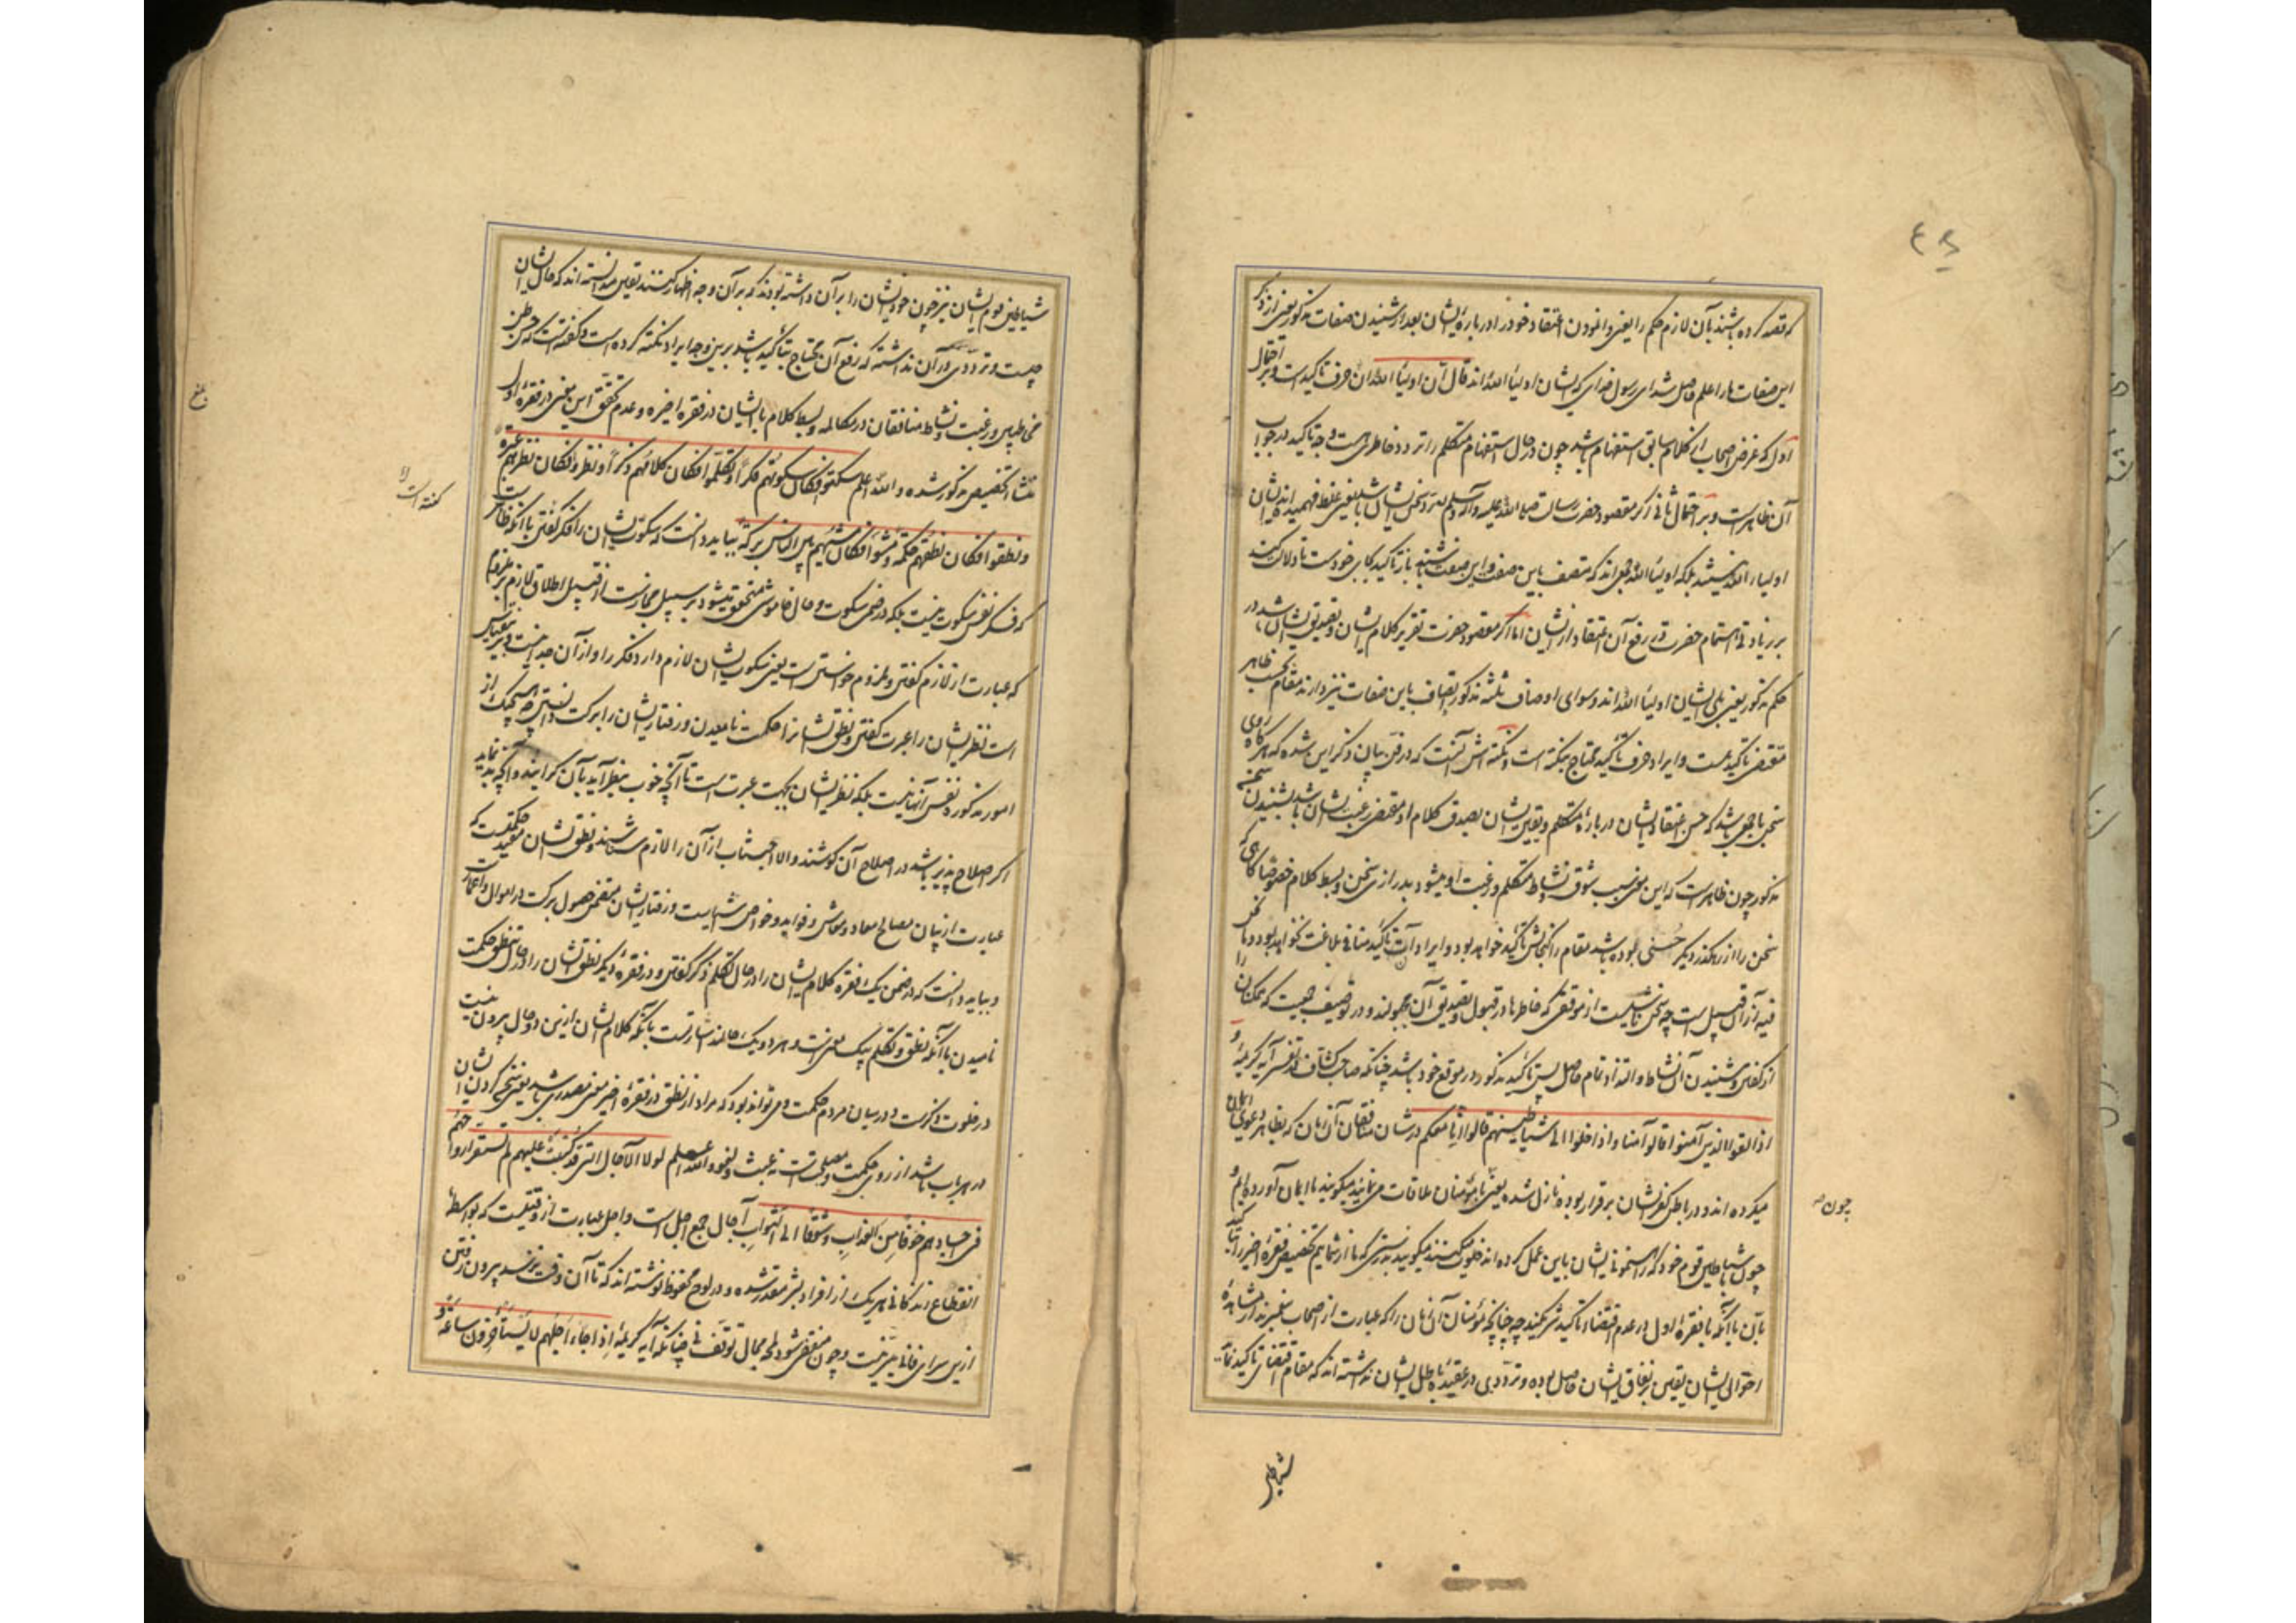 که قصد کرده باشند بآن لازم حکم را یعنی وانمودن اعتقاد خود را در بارهٔ ایشان بعد از شنیدن صفات مذکور یعنی از ذکر
این صفات ما را علم حاصل شد ای رسول خدای که ایشان اولیاء الله اند قال ان اولیاء الله ان حرف تاکید است و بر احتمال
اول که غرض اصحاب از کلام سابق استفهام باشد چون در حال استفهام متکلم را تردد خاطری هست وجه تاکید در جواب
آن ظاهر است و بر احتمال ثانی اگر مقصود حضرت رسالت صلی الله علیه وآله وسلم رد سخن ایشان باشد یعنی غلط فهمیده اند ایشان
اولیاء الله نیستند بلکه اولیاء الله جمعی اند که متصف باین صفت و این صفت باشند باز تاکید بجای خود است تا دلالت کند
بر زیادتی اهتمام حضرت در رفع آن اعتقاد از ایشان اما اگر مقصود حضرت تقریر کلام ایشان و تصدیق ایشان باشد در
حکم مذکور یعنی بلی ایشان اولیاء الله اند و سوای اوصاف ثلثه مذکور اتصاف باین صفات نیز دارند مقام بحسب ظاهر
مقتضی تاکید نیست و ایراد حرف تاکید محتاج بنکته است و نکته اش آنست که در فن بیان ذکر این شده که هرگاه روی
سخن با جمعی باشد که حسن اعتقاد ایشان در بارهٔ متکلم و یقین ایشان بصدق کلام او مقتضی رغبت ایشان باشد بشنیدن سخن
مذکور چون ظاهر است که این معنی سبب شوق و نشاط متکلم و رغبت او میشود بدرازی سخن و بسط کلام خصوصا گاهی که
سخن را از رهگذر دیگر حسنی بوده باشد مقام را گنجایش تاکید خواهد بود و ایراد آن تاکید منافی بلاغت نخواهد بود و ما نحن
فیه از آن قبیل است چه سخن از موقعی که خاطرها در قبول و تصدیق آن مجبولند و در توصیف جمعیت که ممکنان را
از گفتن و شنیدن آن نشاط و التذاذ تمام حاصل پس تاکید مذکور در موقع خود باشد چنانکه صاحب کشاف در تفسیر آیه کریمهٔ و
اذا لقوا الذین آمنوا قالوا آمنا واذا خلوا الی شیاطینهم قالوا انا معکم در شان منافقان آن زمان که بظاهر دعوی ایمان
میکرده اند و در باطن کفر ایشان برقرار بوده نازل شده یعنی با مؤمنان ملاقات می نمایند میگویند ما ایمان آورده ایم و
چون با شیاطین قوم خود که راهنمونی ایشان باین عمل کرده اند خلوت میکنند میگویند بدرستی که ما از شمائیم تخصیص فقرهٔ اخیر را بتاکید
بآن با آنکه با فقرهٔ اول در عدم اقتضاء تاکید شریکند چه چنانچه مؤمنان آن زمان را که عبارت از اصحاب پیغمبرند از مشاهدهٔ
احوال ایشان یقین بر نفاق ایشان حاصل بوده و ترددی در عقیدهٔ باطل ایشان نداشته اند که مقام اقتضای تاکید نماید
چون
شیاطین
شیاطین قوم ایشان نیز چون خود ایشان را بر آن داشته بودند که بر آن وجه اظهار کنند یقین میدانسته اند که حال ایشان
چیست و ترددی در آن نداشته که رفع آن محتاج بتاکید باشد برین وجه ایراد نکته کرده است و گفته است که حسن ظن
مخاطبین و رغبت و نشاط منافقان در مکالمه و بسط کلام با ایشان در فقره اخیره و عدم تحقق این معنی در فقرهٔ اول
منشأ تخصیص مذکور شده والله اعلم سکتوا فکان سکوتهم فکراً وتکلموا فکان کلامهم ذکراً ونظروا فکان نظرهم عبرة
ونطقوا فکان نطقهم حکمة ومشوا فکان مشیهم بین الناس برکة بباید دانست که سکوت ایشان را فکر گفتن با آنکه ظاهر است
که فکر نفس سکوت نیست بلکه در ضمن سکوت و حال خاموشی متحقق میشود بر سبیل مجاز است از قبیل اطلاق لازم بر ملزوم
که عبارت از لازم گفتن و ملزوم خواستن است یعنی سکوت ایشان لازم دارد فکر را و از آن جدا نیست و برین قیاس
است نظر ایشان را عبرت گفتن و نطق ایشان را حکمت نامیدن و رفتار ایشان را برکت دانستن چه هیچیک از
امور مذکوره نفس آنها نیست بلکه نظر ایشان بجهت عبرت است تا آنچه خوب بنظر آید بآن گرایند و آنچه بد نماید
اگر اصلاح پذیر باشد در اصلاح آن کوشند و الا اجتناب از آن را لازم شناسند و نطق ایشان مفید حکمتیست که
عبارت از بیان مصالح معاد و معاش و فواید و خواص اشیاست و رفتار ایشان متضمن حصول برکت در اموال و اعمار است
و بباید دانست که در ضمن یک فقره کلام ایشان را در حال تکلم ذکر گفتن و در فقرهٔ دیگر نطق ایشان را در حال نطق حکمت
نامیدن با آنکه نطق و تکلم بیک معنی است و هر دو یک حالند اشارتست بآنکه کلام ایشان ازین دو حال بیرون نیست
در خلوت ذکرست و در میان مردم حکمت و می تواند بود که مراد از نطق در فقرهٔ اخیر معنی مصدری باشد یعنی سخن کردن ایشان
در هر باب باشد از روی حکمت و مصلحت است نه عبث و لغو والله اعلم لولا الآجال التی قد کتبت علیهم لم تستقر ارواحهم
فی اجسادهم خوفاً من العذاب وشوقاً الی الثواب آجال جمع اجل است و اجل عبارت از وقتیست که بواسطهٔ
انقطاع زندگانی هر یک از افراد بشر مقدر شده و در لوح محفوظ نوشته اند که تا آن وقت نرسد بیرون رفتن
ازین سرای فانی میسر نیست و چون منقضی شود لمحهٔ مجال توقف نی چنانکه آیه کریمهٔ اذا جاء اجلهم لا یستأخرون ساعة و
گفته است